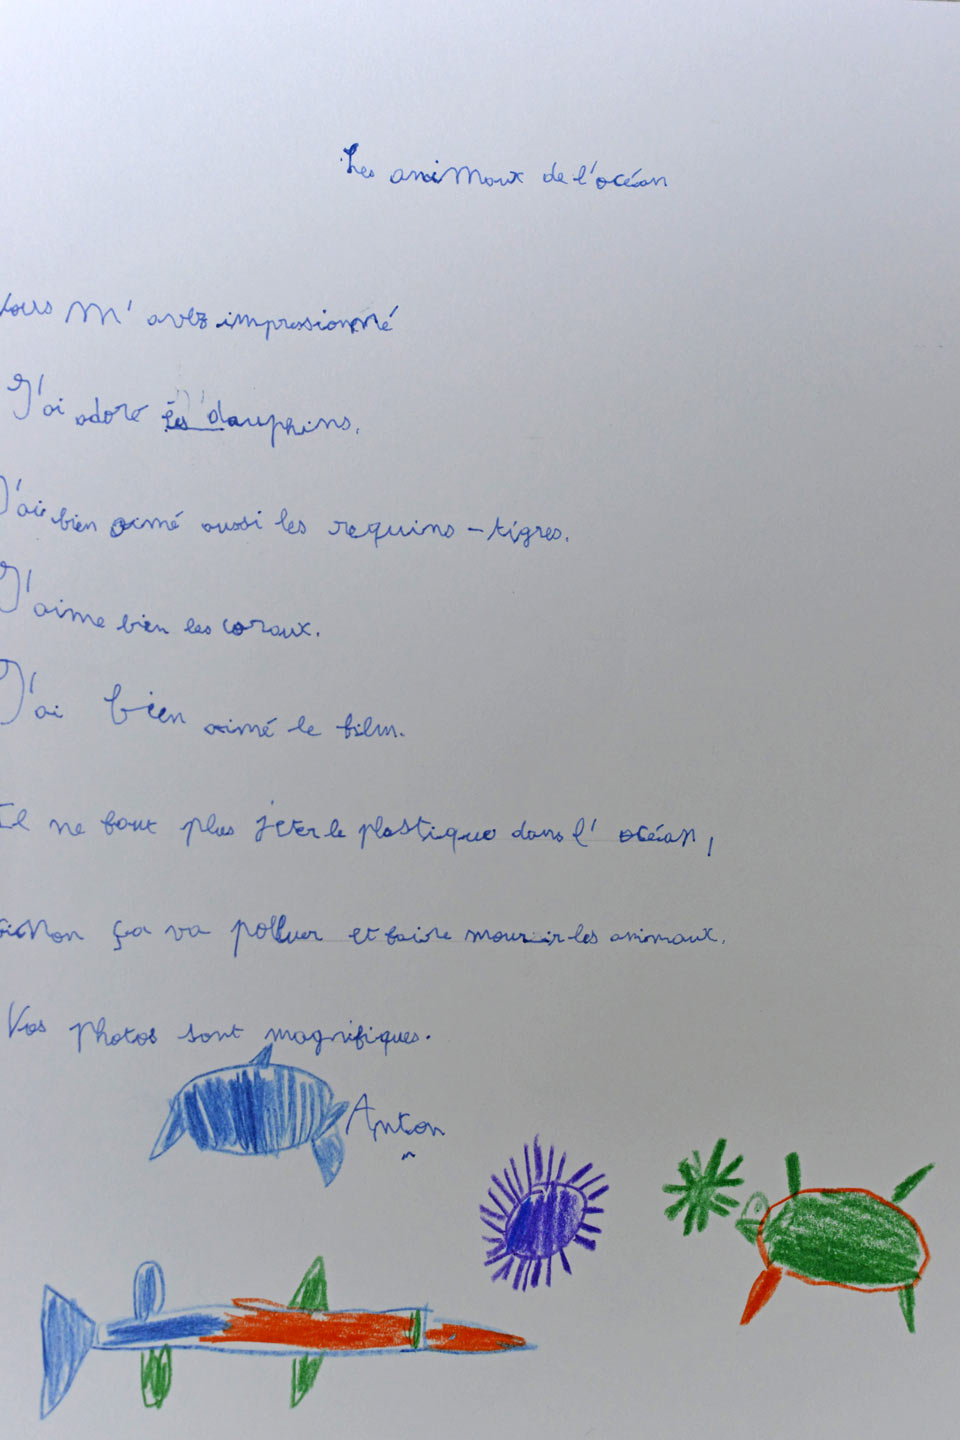 Les animaux de l'océan
Vous m'avez impressionné
J'ai adoré les dauphins.
J'ai bien aimé aussi les requins-tigres.
J'aime bien les coraux.
J'ai bien aimé le film.
Il ne faut plus jeter le plastique dans l'océan,
sinon ça va polluer et faire mourir les animaux.
Vos photos sont magnifiques.
Anton